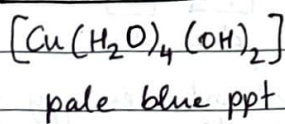 [Cu(H₂O)₄(OH)₂]
pale blue ppt